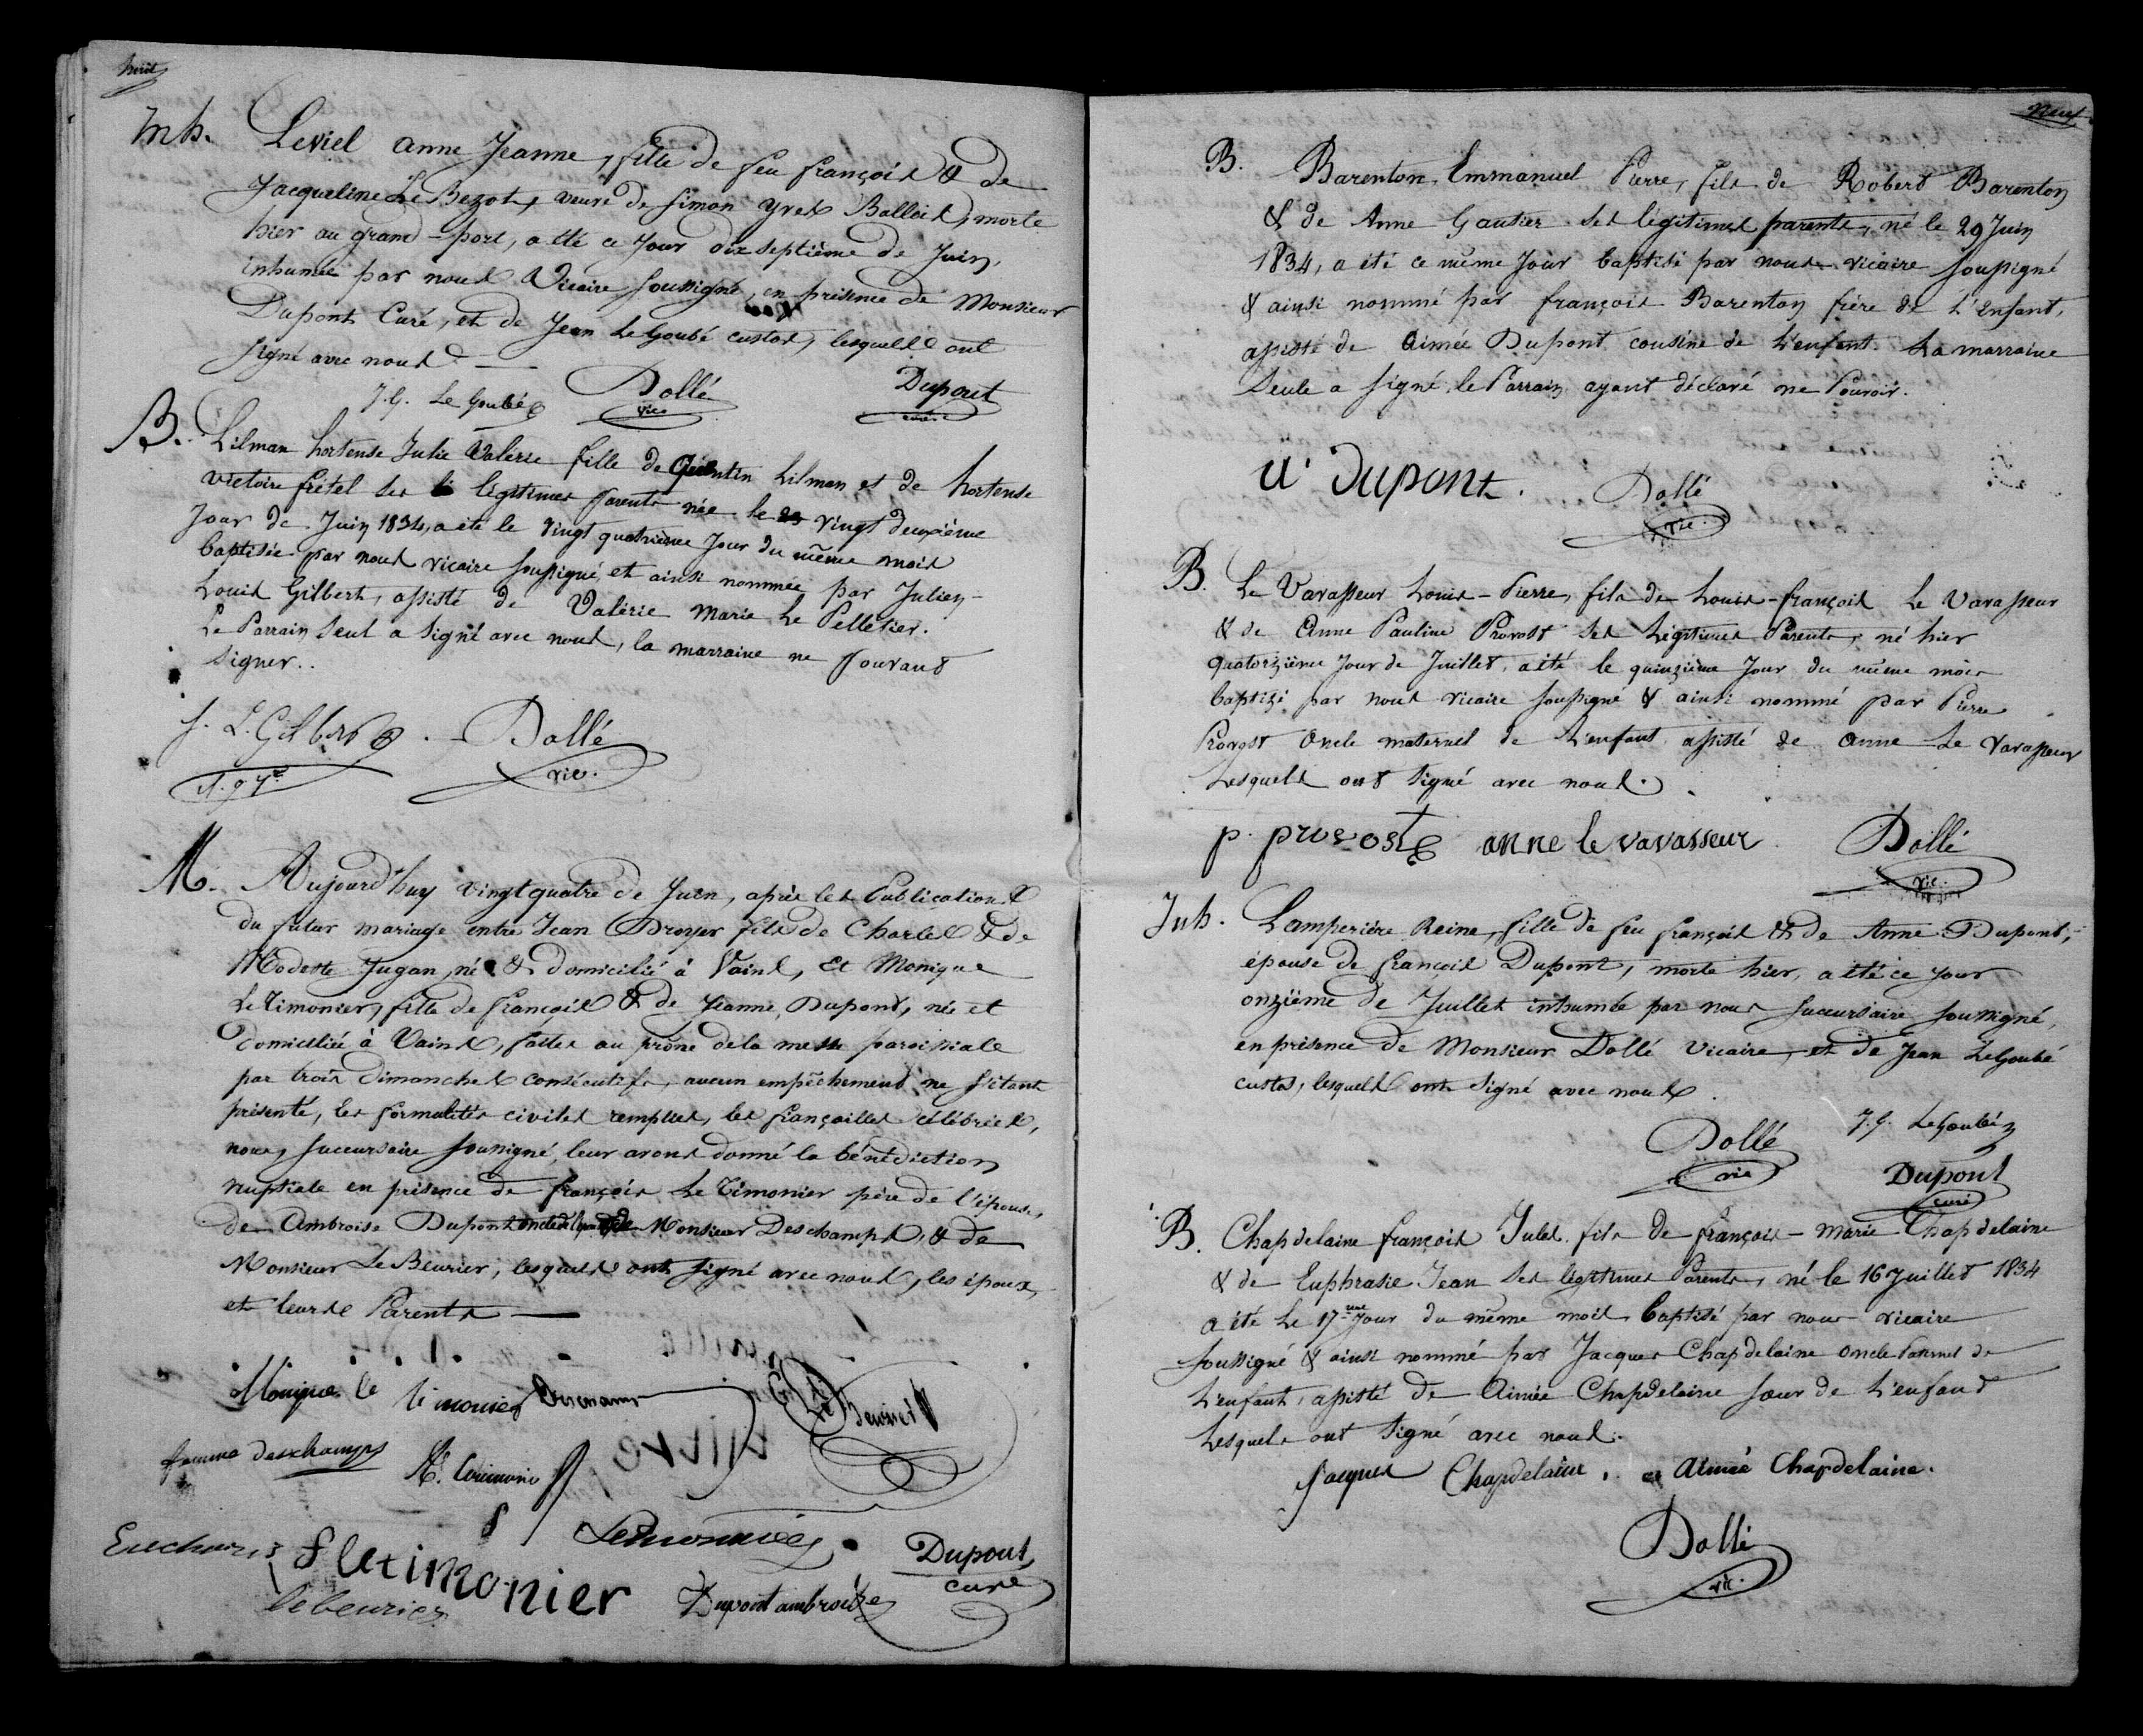 huit
Inh. Leviel anne Jeanne, fille de feu françois & de
Jacqueline Le Bezot, veuve de Simon yves Ballois, morte
hier au grand-port, a été ce jour dix septième de Juin,
inhumée par nous Vicaire soussigné, en présence de Monsieur
Dupont Curé, et de Jean LeGoubé custos, lesquels ont
signé avec nous
J.G. Le Goubé Dollé Dupont
vic. curé
B. Lilman hortense Julie Valérie fille de Quentin Lilman et de hortense
victoire frétel ses légitimes parents née le vingt deuxième
Jour de Juin 1834, a été le vingt quatrième Jour du même mois
baptisée par nous vicaire soussigné, et ainsi nommée par Julien-
Louis Gilbert, assisté de Valérie Marie Le Pelletier.
Le Parrain seul a signé avec nous, la marraine ne pouvant
signer..
J. L. Gilbert Dollé
vic.
M. Aujourd'huy vingt quatre de Juin, après les Publications
du futur mariage entre Jean Droyer fils de Charles & de
Modeste Jugan, né & domicilié à Vains, et Monique
LeTimonier, fille de françois & de Jeanne Dupont, née et
domiciliée à Vains, faites au prône de la messe paroissiale
par trois dimanches consécutifs, aucun empêchement ne s'étant
présenté, les formalités civiles remplies, les françailles célébrées,
nous, succursaire soussigné, leur avons donné la bénédiction
nuptiale en présence de françois Le Timonier père de l'épouse,
de Ambroise Dupont Monsieur Deschamps, & de
Monsieur LeBeurier, lesquels ont signé avec nous, les époux,
et leurs Parents
Monique le timonier Deschamps
femme deschamps
Lemonnier Dupont
curé
Eucharis f letimonier
lebeurier Dupont ambroise
neuf
B. Barenton Emmanuel Pierre, fils de Robert Barenton
& de Anne Gautier ses légitimes parents, né le 29 Juin
1834, a été ce même Jour baptisé par nous vicaire soussigné
& ainsi nommé par françois Barenton frère de l'enfant,
assisté de Aimée Dupont cousine de l'enfant. La marraine
seule a signé, le Parrain ayant déclaré ne Pouvoir.
a. Dupont. Dollé
vic.
B. Le Vavasseur Louis-Pierre, fils de Louis-françois Le Vavasseur
& de Anne Pauline Provost ses légitimes Parents, né hier
quatorzième Jour de Juillet, a été le quinzième Jour du même mois
baptisé par nous vicaire soussigné & ainsi nommé par Pierre
Provost Oncle maternel de l'enfant assisté de Anne Le Vavasseur
Lesquels ont signé avec nous.
p. provost anne le vavasseur Dollé
vic.
Inh. Lamperière Reine, fille de feu françois & de Anne Dupont,
épouse de françois Dupont, morte hier, a été ce jour
onzième de Juillet inhumée par nous succursaire soussigné,
en présence de Monsieur Dollé Vicaire, et de Jean LeGoubé
custos, lesquels ont signé avec nous.
Dollé J.G. LeGoubé
vic Dupont
curé
B. Chapdelaine françois Jules fils de françois-marie Chapdelaine
& de Euphrasie Jean ses légitimes Parents, né le 16 Juillet 1834
a été le 17me Jour du même mois baptisé par nous vicaire
soussigné & ainsi nommé par Jacques Chapdelaine oncle Paternel de
l'enfant, assisté de Aimée Chapdelaine sœur de l'enfant
Lesquels ont signé avec nous.
Jacques Chapdelaine. Aimée Chapdelaine.
Dollé
vic.